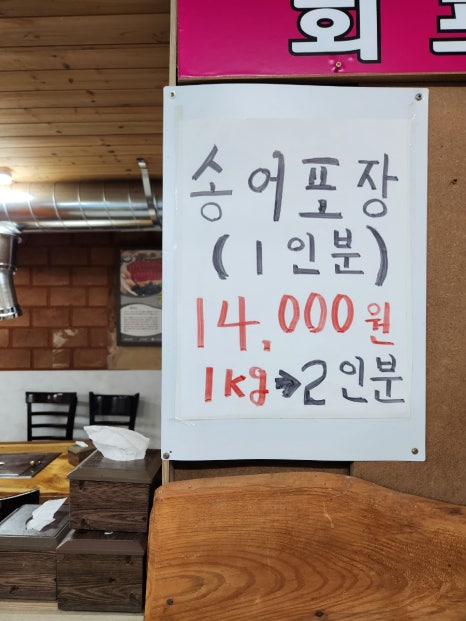 회
송어포장
(1인분)
14,000원
1kg→2인분